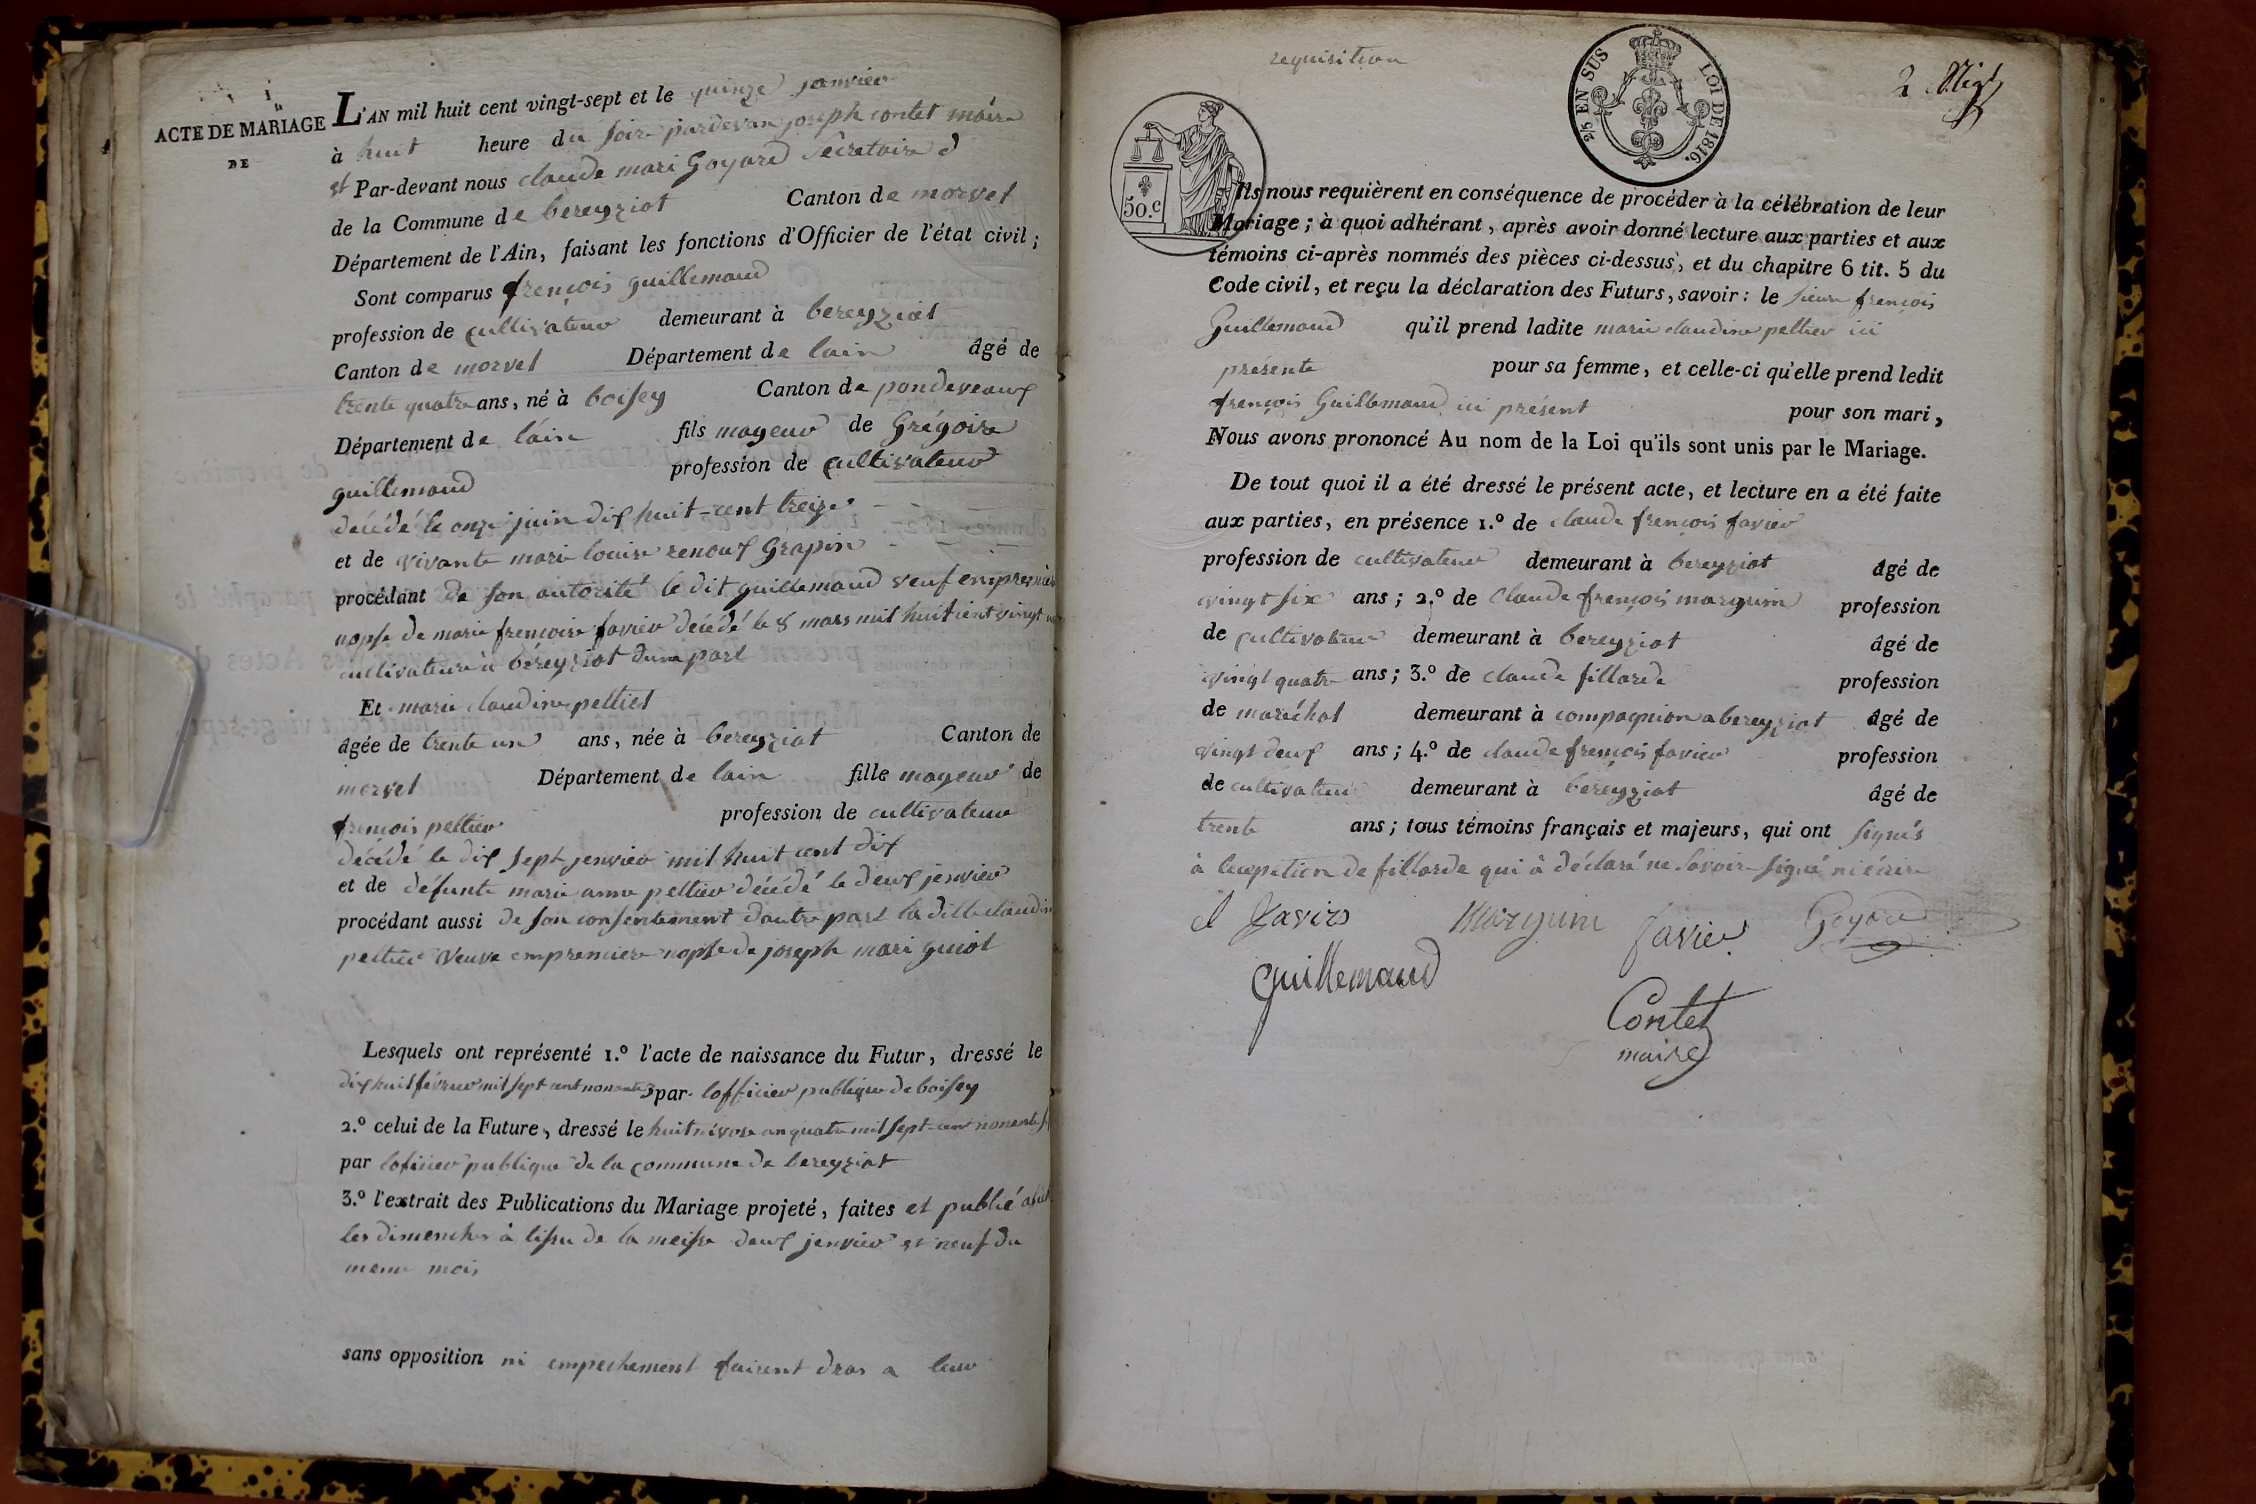 ACTE DE MARIAGE
DE
L'AN mil huit cent vingt-sept et le quinze janvier
à huit heure du soire pardevan joseph contet maire
et Par-devant nous claude mari Goyard Secretaire d
de la Commune de bereyziat Canton de morvel
Département de l'Ain, faisant les fonctions d'Officier de l'état civil ;
Sont comparus françois guillemaud
profession de cultivateur demeurant à bereyziat
Canton de morvel Département de lain âgé de
trente quatre ans, né à boisey Canton de pondeveaux
Département de láin fils mageur de Grégoire
guillemaud profession de cultivateur
décédé le onze juin dix huit-cent treize
et de vivante marie louise renoux Grapin
procédant de son autorité le dit guillemaud veuf en première
nopse de marie françoise favier décédé le 8 mars mil huit cent vingt
cultivateur à béreyziat dune part
Et marie claudine peltiet
âgée de trente un ans, née à bereyziat Canton de
morvel Département de lain fille mageur de
françois peltier profession de cultivateur
décédé le dix sept jenvier mil huit cent dix
et de défunte marie anne peltier décédé le deux jenvier
procédant aussi de son consentement dautre part la dille claudine
peltier veuve empremiere nopse de joseph mari guiot
Lesquels ont représenté 1.º l'acte de naissance du Futur, dressé le
dix huit février mil sept cent nonante 3 par lofficier publique de boisey
2.º celui de la Future, dressé le huit nivose an quatre mil sept cent nonante
par loficier publique de la commune de bereyziat
3.º l'extrait des Publications du Mariage projeté, faites et publié
les dimenches à lissu de la meisse deux jenvier et neuf du
meme mois
sans opposition ni empechement fairent dras a leur
requisition
2/5 EN SUS LOI DE 1816.
2
50.c
Ils nous requièrent en conséquence de procéder à la célébration de leur
Mariage ; à quoi adhérant, après avoir donné lecture aux parties et aux
témoins ci-après nommés des pièces ci-dessus, et du chapitre 6 tit. 5 du
Code civil, et reçu la déclaration des Futurs, savoir : le sieur françois
Guillemaud qu'il prend ladite marie claudine peltier ici
présente pour sa femme, et celle-ci qu'elle prend ledit
françois Guillemaud ici présent pour son mari,
Nous avons prononcé Au nom de la Loi qu'ils sont unis par le Mariage.
De tout quoi il a été dressé le présent acte, et lecture en a été faite
aux parties, en présence 1.º de claude françois favier
profession de cultivateur demeurant à bereyziat âgé de
vingt six ans ; 2.º de Claude françois marguin profession
de cultivateur demeurant à bereyziat âgé de
vingt quatre ans ; 3.º de claude fillarde profession
de maréchal demeurant à compagnion a bereyziat âgé de
vingt deux ans ; 4.º de claude françois favier profession
de cultivateur demeurant à bereyziat âgé de
trente ans ; tous témoins français et majeurs, qui ont signés
à lecxpetion de fillarde qui à déclaré ne savoir signé ni écrire
cl favier Marguin favier Goyard
Guillemaud
Contet
maire